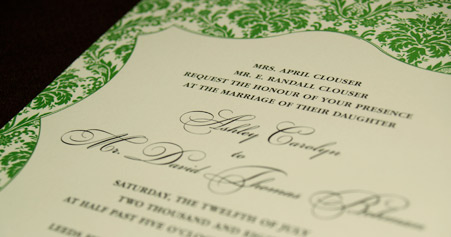 MRS. APRIL CLOUSER
MR. E. RANDALL CLOUSER
REQUEST THE HONOUR OF YOUR PRESENCE
AT THE MARRIAGE OF THEIR DAUGHTER
Ashley Carolyn
to
Mr. David Thomas
SATURDAY, THE TWELFTH OF JULY
TWO THOUSAND AND
AT HALF PAST FIVE O'CLOCK
LEEDS